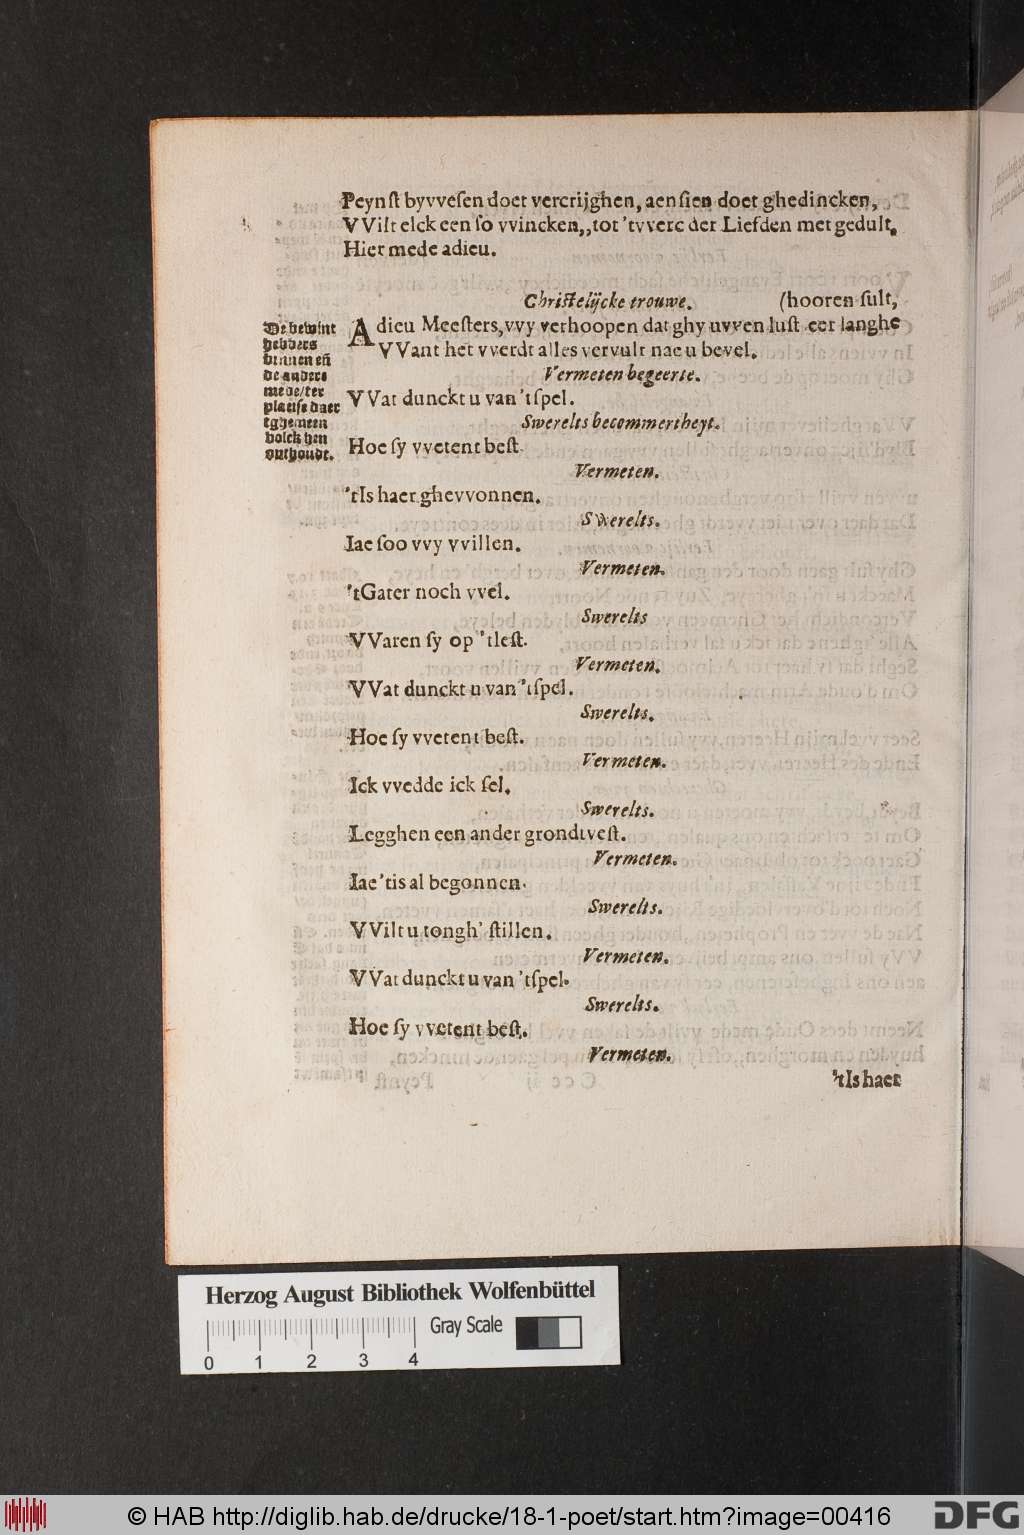 Peynſt byvveſen doet vercrijghen, aenſien doet ghedincken,
VVilt elck een ſo vvincken,,tot 'tvverc der Liefden met gedult.
Hier mede adieu.
Chriſtelijcke trouwe. (hooren ſult,
Adieu Meeſters, vvy verhoopen dat ghy uvven luſt eer langhe
VVant het vverdt alles vervult nae u bevel.
De bewint
hebbers
binnen eñ
de anders
mede/ter
plaetſe daer
tghemeen
volck hen
onthoudt.
Vermeten begeerte.
VVat dunckt u van 'tſpel.
Swerelts becommertheyt.
Hoe ſy vvetent beſt.
Vermeten.
'tIs haer ghevvonnen.
Swerelts.
Iae ſoo vvy vvillen.
Vermeten.
'tGater noch vvel.
Swerelts
VVaren ſy op 'tleſt.
Vermeten.
VVat dunckt u van 'tſpel.
Swerelts.
Hoe ſy vvetent beſt.
Vermeten.
Ick vvedde ick ſel.
Swerelts.
Legghen een ander grondtveſt.
Vermeten.
Iae 'tis al begonnen.
Swerelts.
VVilt u tongh' ſtillen.
Vermeten.
VVat dunckt u van 'tſpel.
Swerelts.
Hoe ſy vvetent beſt.
Vermeten.
'tIs haer
Herzog August Bibliothek Wolfenbüttel
Gray Scale
0 1 2 3 4
© HAB http://diglib.hab.de/drucke/18-1-poet/start.htm?image=00416
DFG